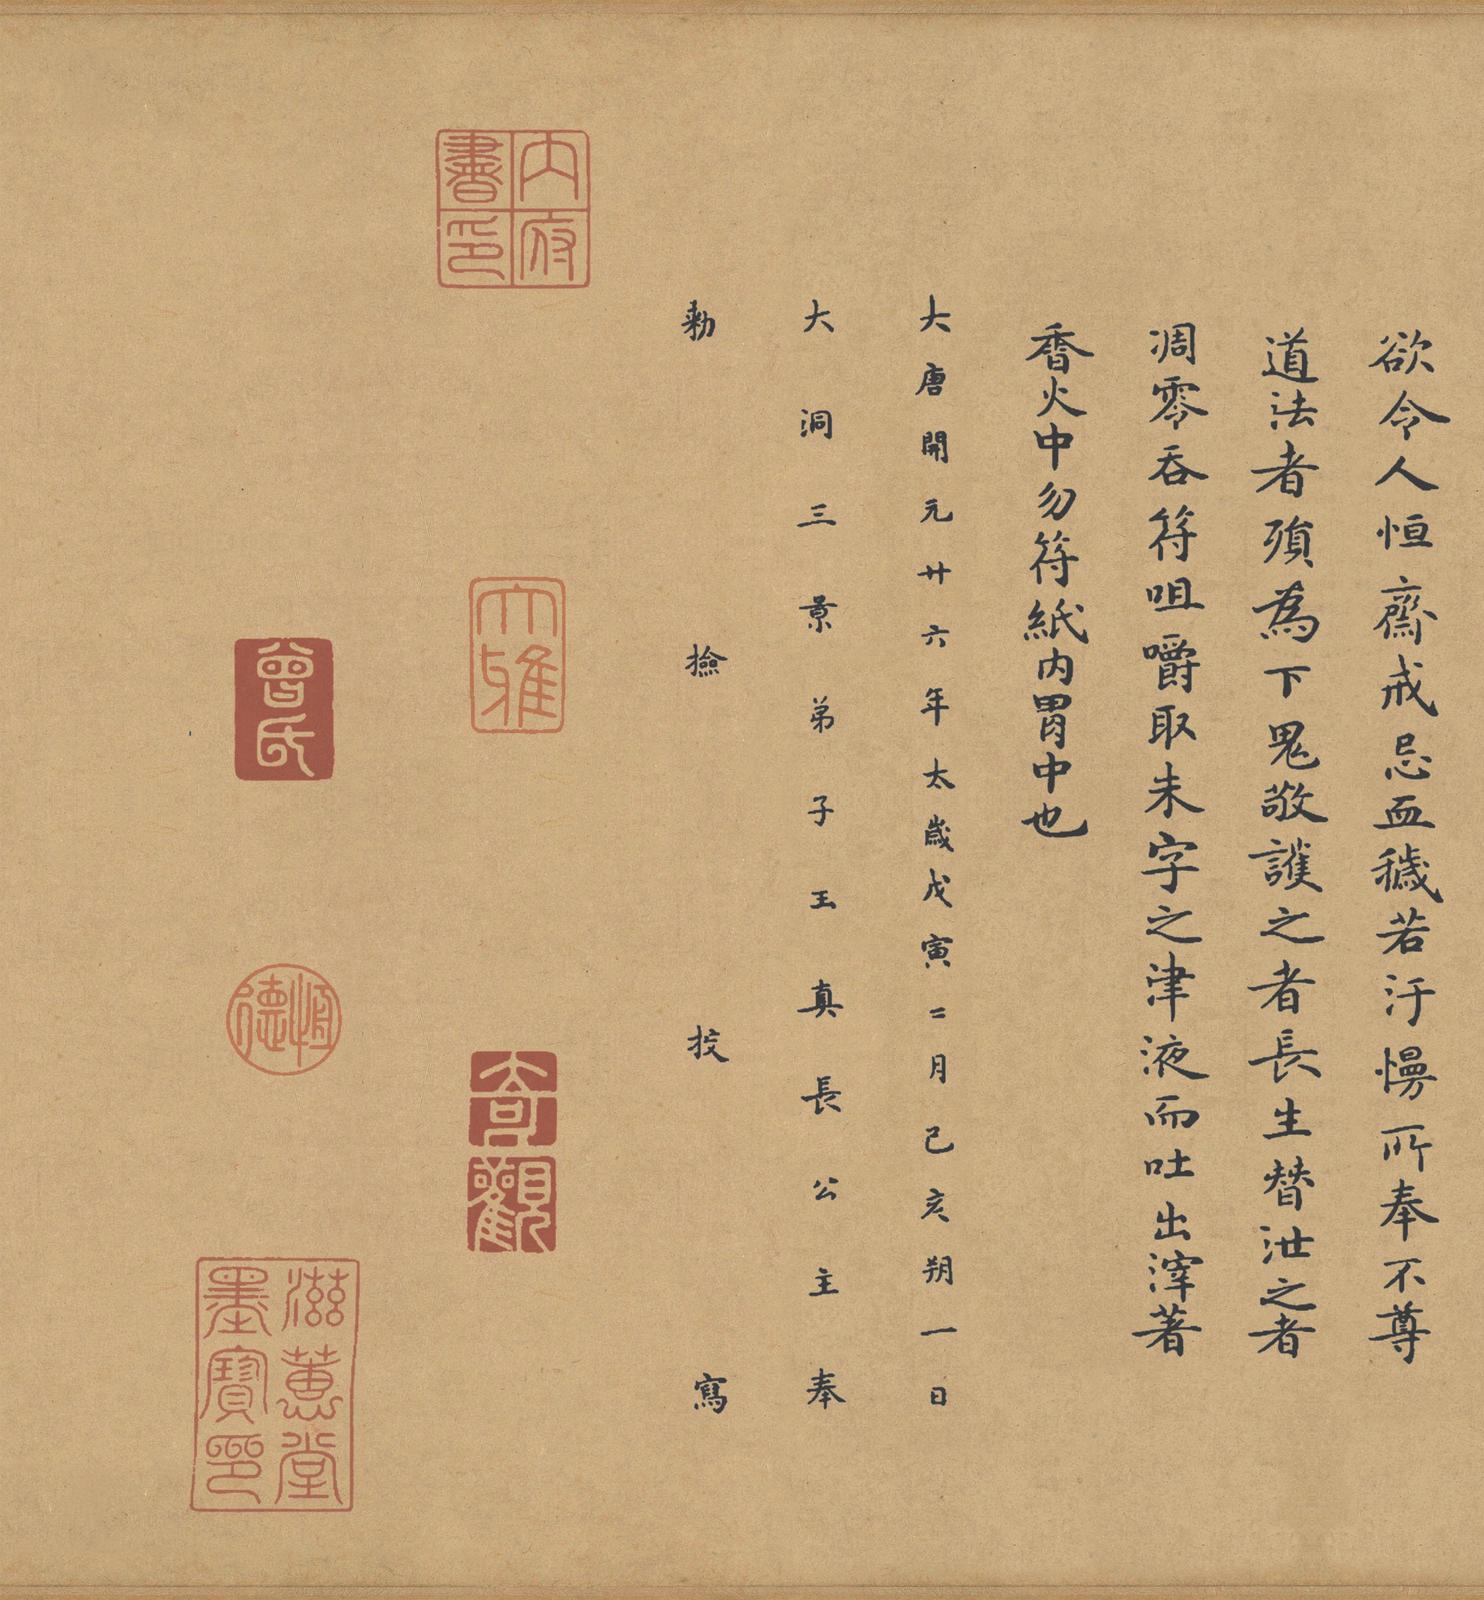 欲令人恒齋戒忌血穢若汙慢所奉不尊
道法者須為下鬼敬護之者長生替泄之者
凋零吞符咀嚼取朱字之津液而吐出滓著
香火中勿符紙內胃中也
大唐開元廿六年太歲戊寅二月己亥朔一日
大洞三景弟子玉真長公主奉
勑撿挍寫
內府書印
大雅
奇觀
曾氏
恒德
滋蕙堂墨寶印